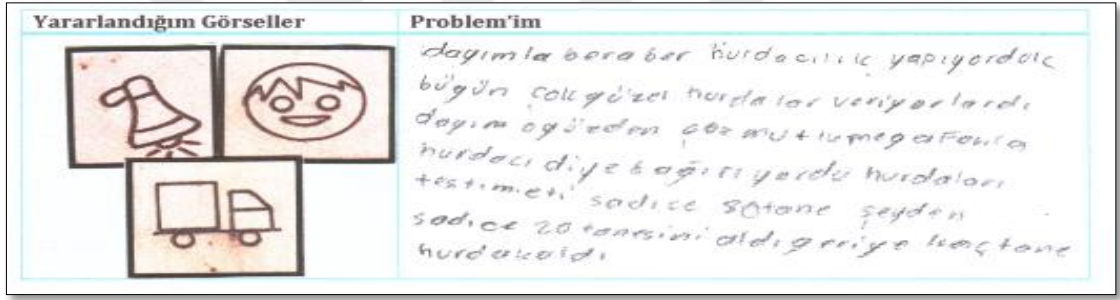 Yararlandığım Görseller
Problem'im
dayımla beraber hurdacılık yapıyorduk
bügün çok güzel hurdalar veriyorlardı
dayım ogüzden çoz mutlu megafonla
hurdacı diye bağırıyordu hurdaları
testimeti sadice 80tane şeyden
sadice 20 tanesini aldı geriye kaçtane
hurdakaldı